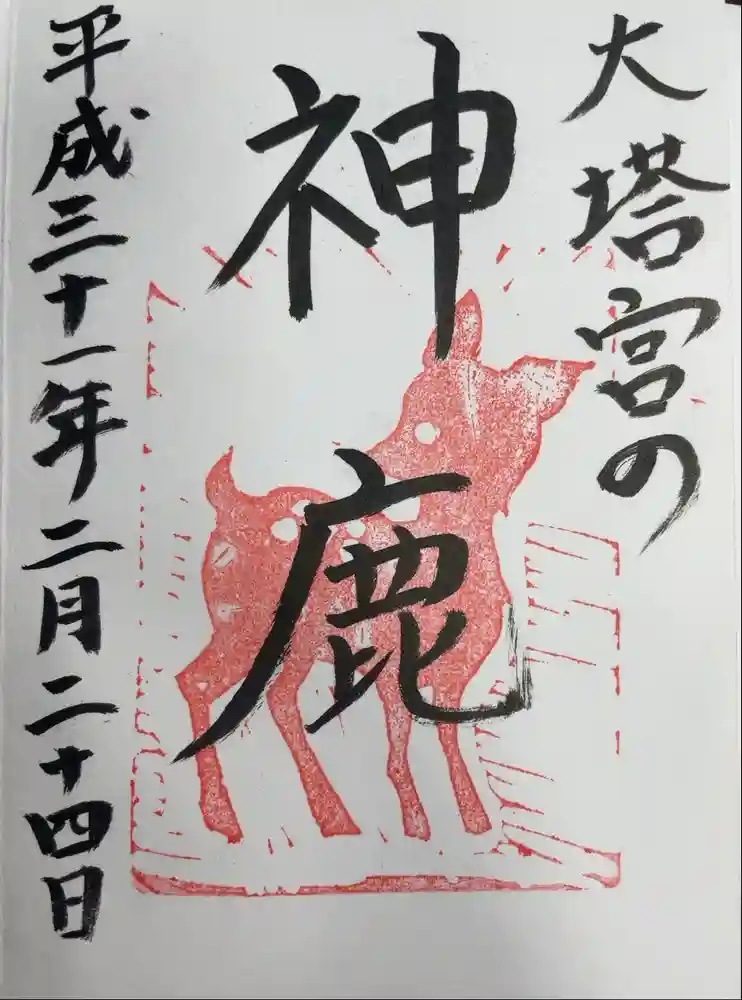 大塔宮の
神鹿
平成三十一年二月二十四日